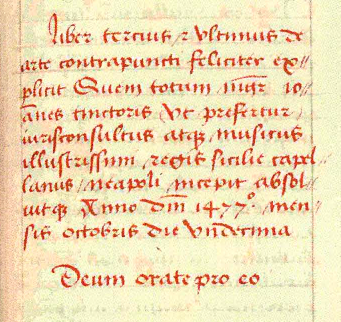 Liber tercius ⁊ ultimus de
arte contrapuncti feliciter ex⸗
plicit Quem totum mgr̄ io⸗
ānes tinctoris (ut prefertur)
iurisconsultus atqꝫ musicus
illustrissimi regis sicilie capel⸗
lanus / neapoli incepit absol⸗
uitqꝫ Anno Dm̄ 1477º. men⸗
sis octobris die undecima
Deum orate pro eo